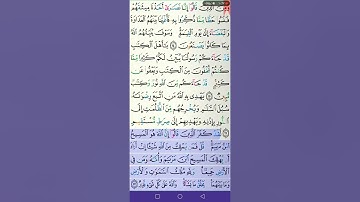 وَمِنَ الَّذِينَ قَالُوا إِنَّا نَصَارَىٰ أَخَذْنَا مِيثَاقَهُمْ
فَنَسُوا حَظًّا مِّمَّا ذُكِّرُوا بِهِ فَأَغْرَيْنَا بَيْنَهُمُ الْعَدَاوَةَ
وَالْبَغْضَاءَ إِلَىٰ يَوْمِ الْقِيَامَةِ ۚ وَسَوْفَ يُنَبِّئُهُمُ اللَّهُ
بِمَا كَانُوا يَصْنَعُونَ ۝ يَا أَهْلَ الْكِتَابِ
قَدْ جَاءَكُمْ رَسُولُنَا يُبَيِّنُ لَكُمْ كَثِيرًا مِّمَّا
كُنتُمْ تُخْفُونَ مِنَ الْكِتَابِ وَيَعْفُو عَن
كَثِيرٍ ۚ قَدْ جَاءَكُم مِّنَ اللَّهِ نُورٌ وَكِتَابٌ
مُّبِينٌ ۝ يَهْدِي بِهِ اللَّهُ مَنِ اتَّبَعَ رِضْوَانَهُ
سُبُلَ السَّلَامِ وَيُخْرِجُهُم مِّنَ الظُّلُمَاتِ إِلَى
النُّورِ بِإِذْنِهِ وَيَهْدِيهِمْ إِلَىٰ صِرَاطٍ مُّسْتَقِيمٍ
۝ لَّقَدْ كَفَرَ الَّذِينَ قَالُوا إِنَّ اللَّهَ هُوَ الْمَسِيحُ
ابْنُ مَرْيَمَ ۚ قُلْ فَمَن يَمْلِكُ مِنَ اللَّهِ شَيْئًا إِنْ أَرَادَ
أَن يُهْلِكَ الْمَسِيحَ ابْنَ مَرْيَمَ وَأُمَّهُ وَمَن فِي
الْأَرْضِ جَمِيعًا ۗ وَلِلَّهِ مُلْكُ السَّمَاوَاتِ وَالْأَرْضِ
وَمَا بَيْنَهُمَا ۚ يَخْلُقُ مَا يَشَاءُ ۚ وَاللَّهُ عَلَىٰ كُلِّ شَيْءٍ قَدِيرٌ ۝